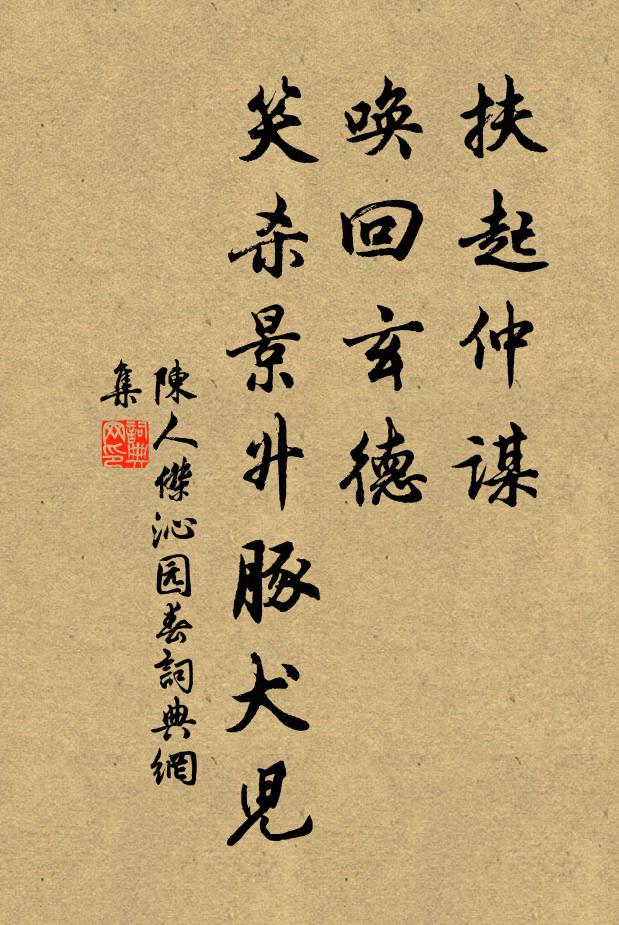 扶起仲謀
唤回玄德
笑杀景升豚犬児
陳人傑沁园春詞典網
集
詞典
网印